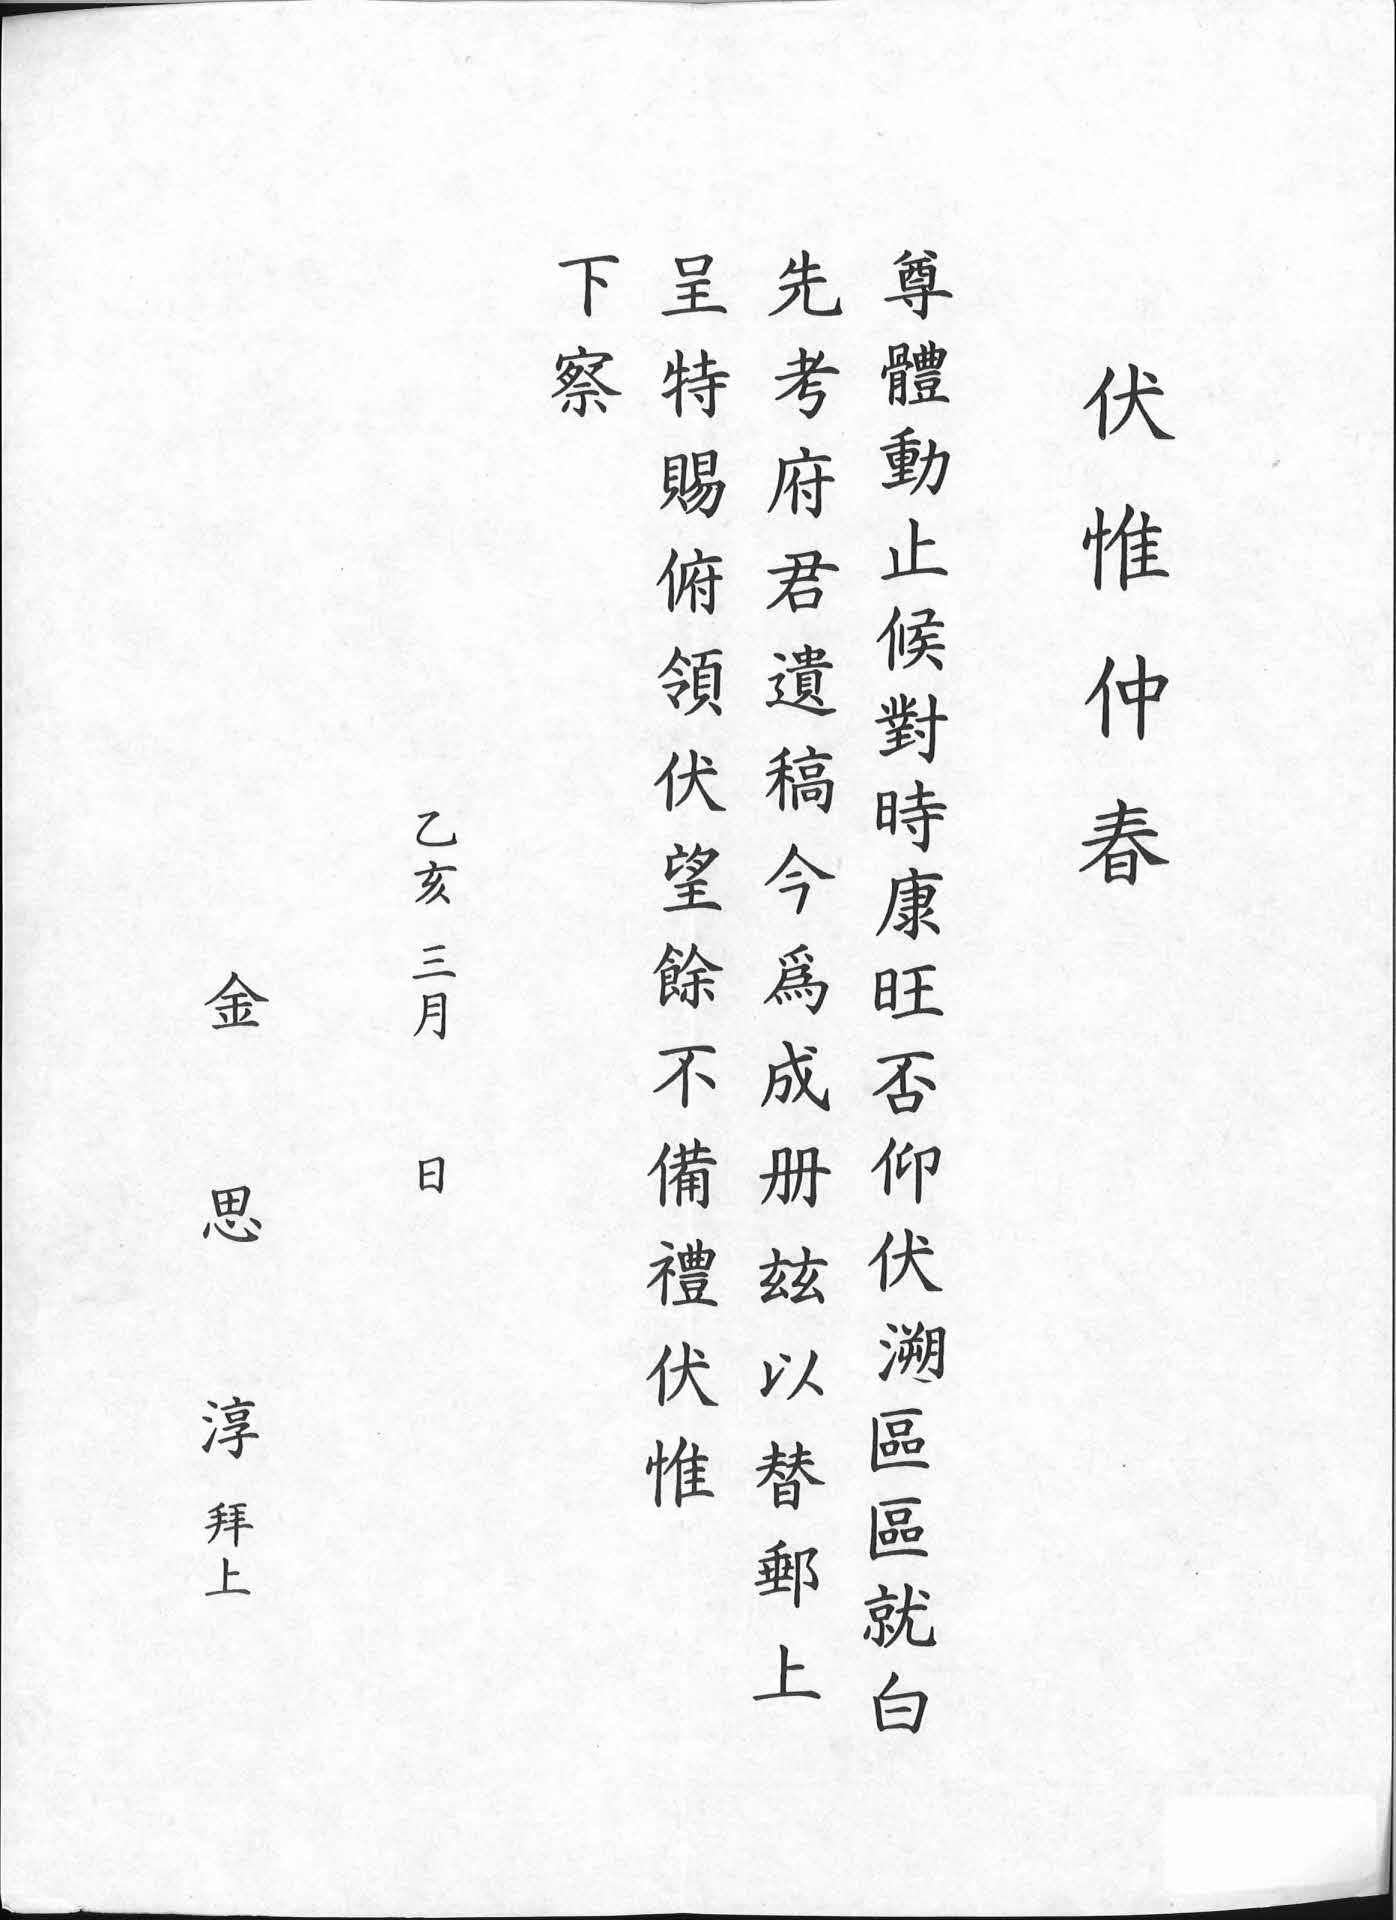 伏惟仲春
尊體動止候對時康旺否仰伏溯區區就白
先考府君遺稿今爲成册玆以替郵上
呈特賜俯領伏望餘不備禮伏惟
下察
乙亥 三月 日
金思淳 拜上